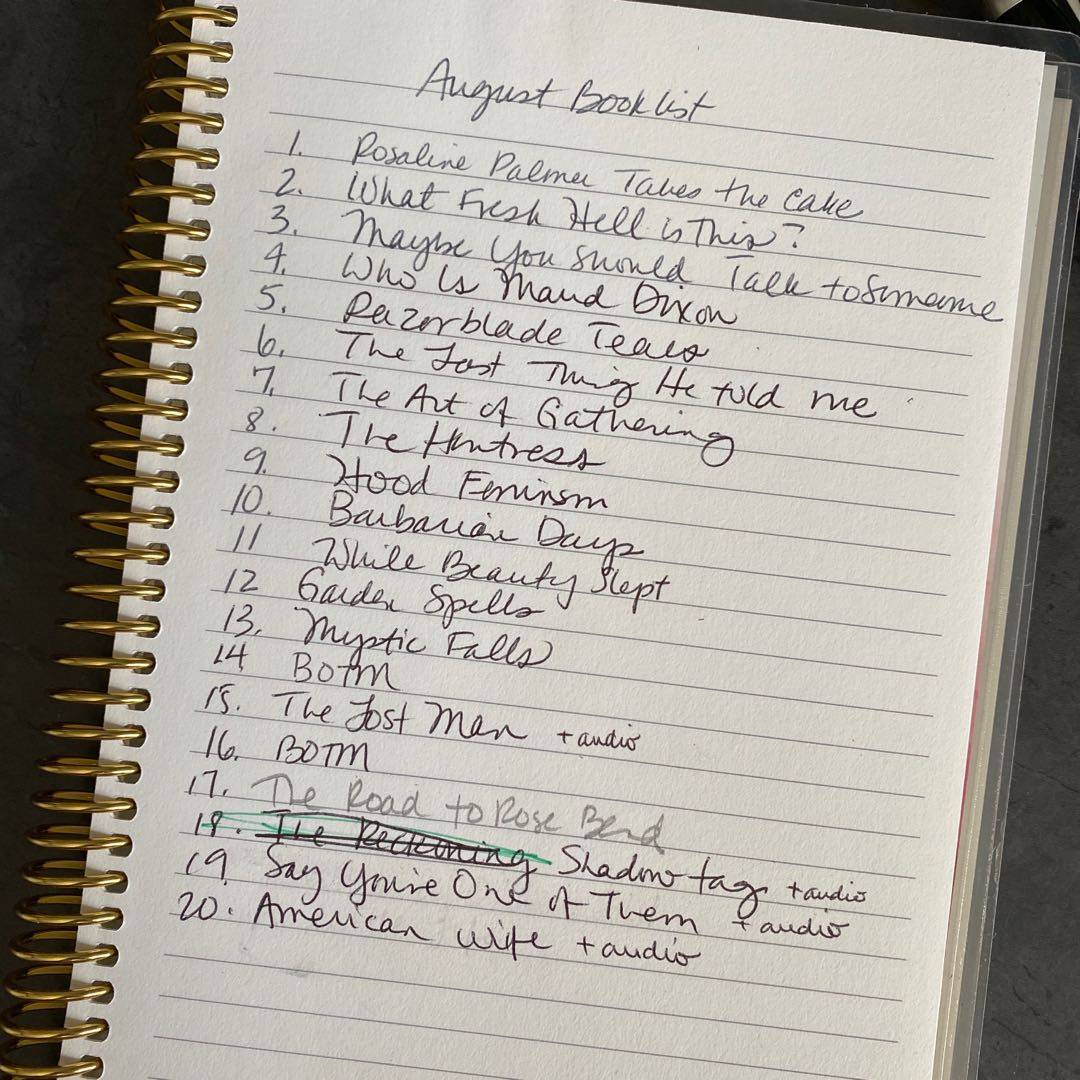 August Booklist
1. Rosaline Palmer Takes the Cake
2. What Fresh Hell is This?
3. Maybe You Should Talk to Someone
4. Who Is Maud Dixon
5. Razorblade Tears
6. The Last Thing He told me
7. The Art of Gathering
8. The Huntress
9. Hood Feminism
10. Barbarian Days
11 While Beauty Slept
12 Garden Spells
13. Mystic Falls
14 BOTM
15. The Lost Man + audio
16. BOTM
17. The Road to Rose Bend
18. The Reckoning Shadow tag + audio
19 Say You're One of Them + audio
20. American Wife + audio